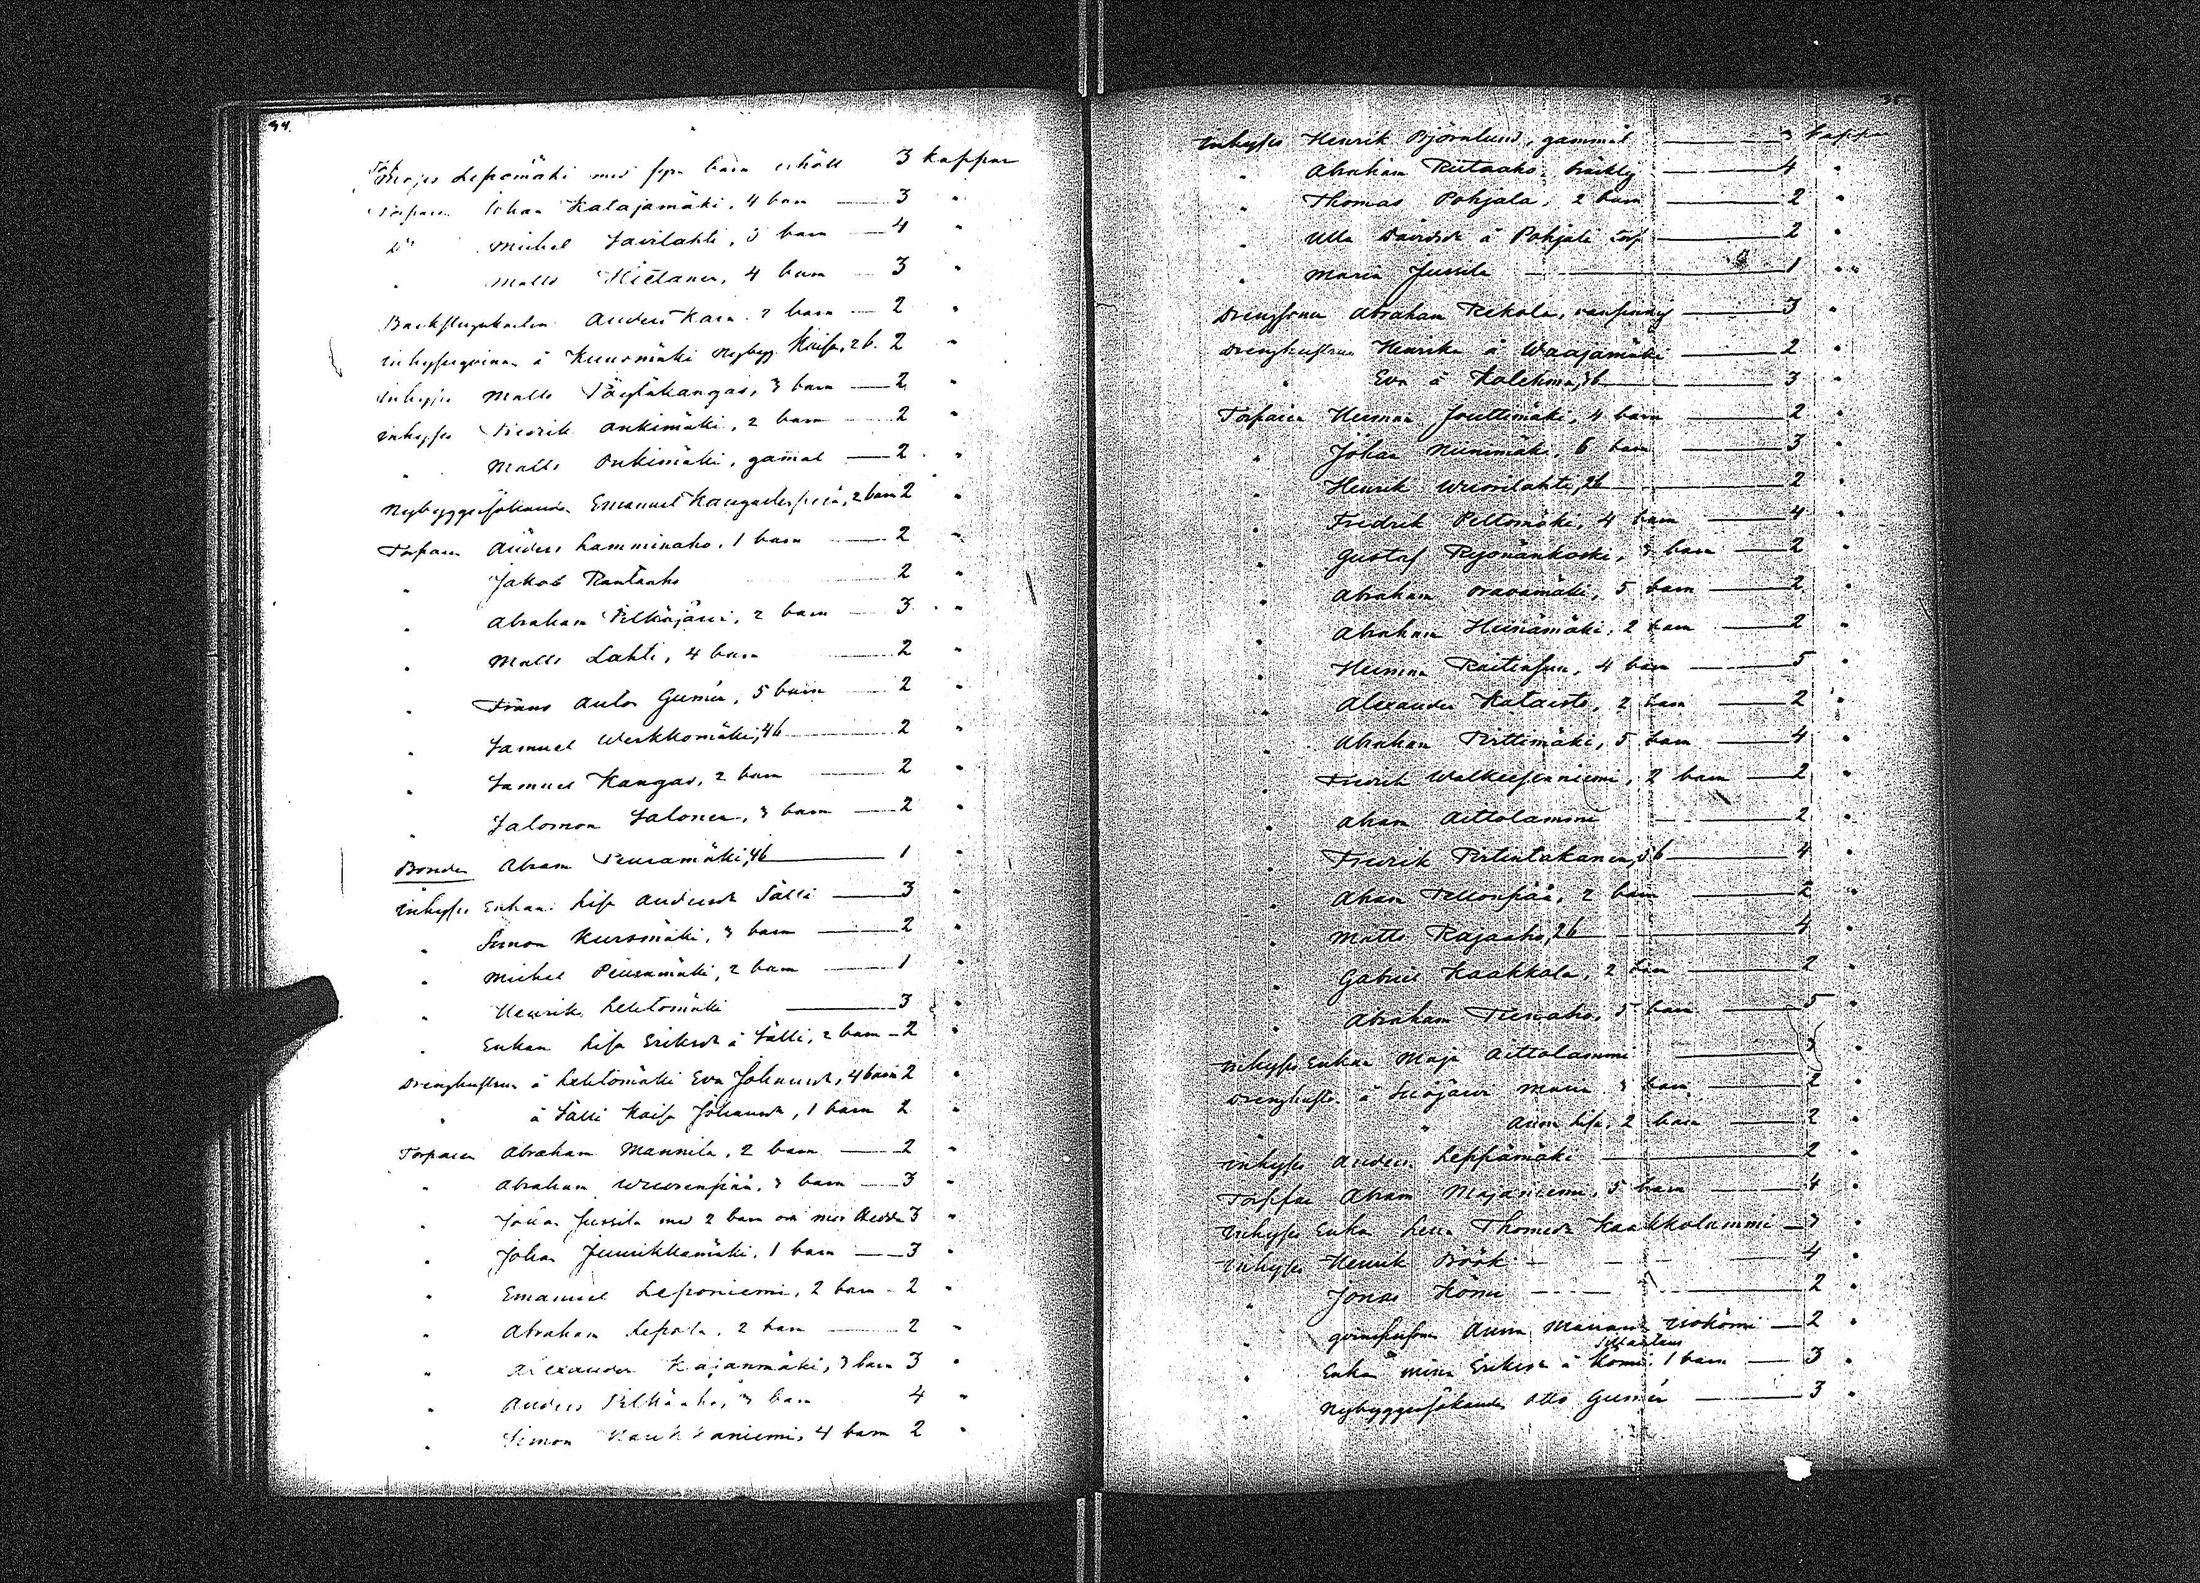 34
Majes Lepomäki med fyra barn erhåll 3 kappar
Torparen Johan Katajamäki, 4 barn — 3 "
Do Michel Savilahti, 3 barn — 4 "
" Matts Hietanen, 4 barn — 3 "
Anders Kara 2 barn — 2 "
inhyseqvinnan å Kuusmäki nybygg. Kaisa, 2 b. 2 "
inhyses Matts Pöyläkangas, 3 barn — 2 "
inhyses Fredrik Onkimäki, 2 barn — 2 "
" Matts Onkimäki, gammal — 2 "
Nybyggessökanden Emanuel 2 barn 2 "
Torparen Anders Lamminaho, 1 barn — 2 "
" Jakob Rantaaho 2 "
" Abraham Pelkäjärvi, 2 barn — 3 "
" Matts Lahti, 4 barn — 2 "
" Frans Anton Gumér, 5 barn — 2 "
" Samuel Werkkomäki, 4 b — 2 "
" Samuel Kangas, 2 barn — 2 "
" Salomon Salonen, 3 barn — 2 "
Bonden Abram Peuramäki, 4 b — 1 "
inhyses Enkan Lisa Andersdr Sälli — 3 "
" Simon Kursmäki, 3 barn — 2 "
" Michel Peuramäki, 2 barn — 1 "
" Henrik Lehtomäki — 3 "
" Enkan Lisa Eriksdr å Sälli, 2 barn — 2 "
Drenghustrun å Lehtomäki Eva Johansdr, 4 barn 2 "
" å Sälli Kaisa Johansdr, 1 barn 2 "
Torparen Abraham Mannila, 2 barn — 2 "
" Abraham Wuorenpää, 3 barn — 3 "
" Johan Jussila med 2 barn 3 "
" Johan Juurikkamäki, 1 barn — 3 "
" Emanuel Leponiemi, 2 barn - 2 "
" Abraham Lepola, 2 barn — 2 "
" Alexander Kajanmäki, 3 barn 3 "
" Anders Pelkäaho, 3 barn 4 "
" Simon 4 barn 2 "
35
inhyses Henrik Björnlund, gammal — 3 kappar
" Abraham Riitaaho, bräcklig — 4 "
" Thomas Pohjala, 2 barn — 2 "
" Ulla Davidsdr å Pohjala torp — 2 "
" Maria Jussila — 1 "
Abraham Rekola, — 3 "
Drenghustrun Henrika å Waajamäki — 2 "
" Eva å — 3 "
Torparen Herman Jouttimäki, 4 barn — 2 "
" Johan Niinimäki, 6 barn — 3 "
" Henrik Wuorilahti, 2 b — 2 "
" Fredrik Peltomäki, 4 barn — 4 "
" Gustaf Ryönänkoski, 3 barn — 2 "
" Abraham Oravamäki, 5 barn — 2 "
" Abraham Heinämäki, 2 barn — 2 "
" Herman 4 barn — 5 "
" Alexander Kataisto, 2 barn — 2 "
" Abraham Perttimäki, 5 barn — 4 "
" Fredrik Walkeisenniemi, 2 barn — 2 "
" Abram Aittolammi — 2 "
" Fredrik — 4 "
" Abram Pellonpää, 2 barn — 2 "
" Matts Rajaaho, 2 b — 4 "
" Gabriel Kaakkola, 2 barn — 2 "
" Abraham 5 barn — 5 "
inhyses Enkan Maja Aittolammi — 3 "
Drenghustr. å Maria 3 barn — 2 "
" " Anna Lisa, 2 barn — 2 "
inhyses Anders Leppämäki — 2 "
Torpare Abram Majaniemi, 5 barn — 4 "
inhyses Enkan Lena Thomasdr Kaakkolammi — 3 "
inhyses Henrik Böök — 4 "
" Jonas Kömi — 2 "
" Anna — 2 "
" Enkan Mina Eriksdr å Kömi 1 barn — 3 "
" Nybyggessökanden Otto Gumér — 3 "